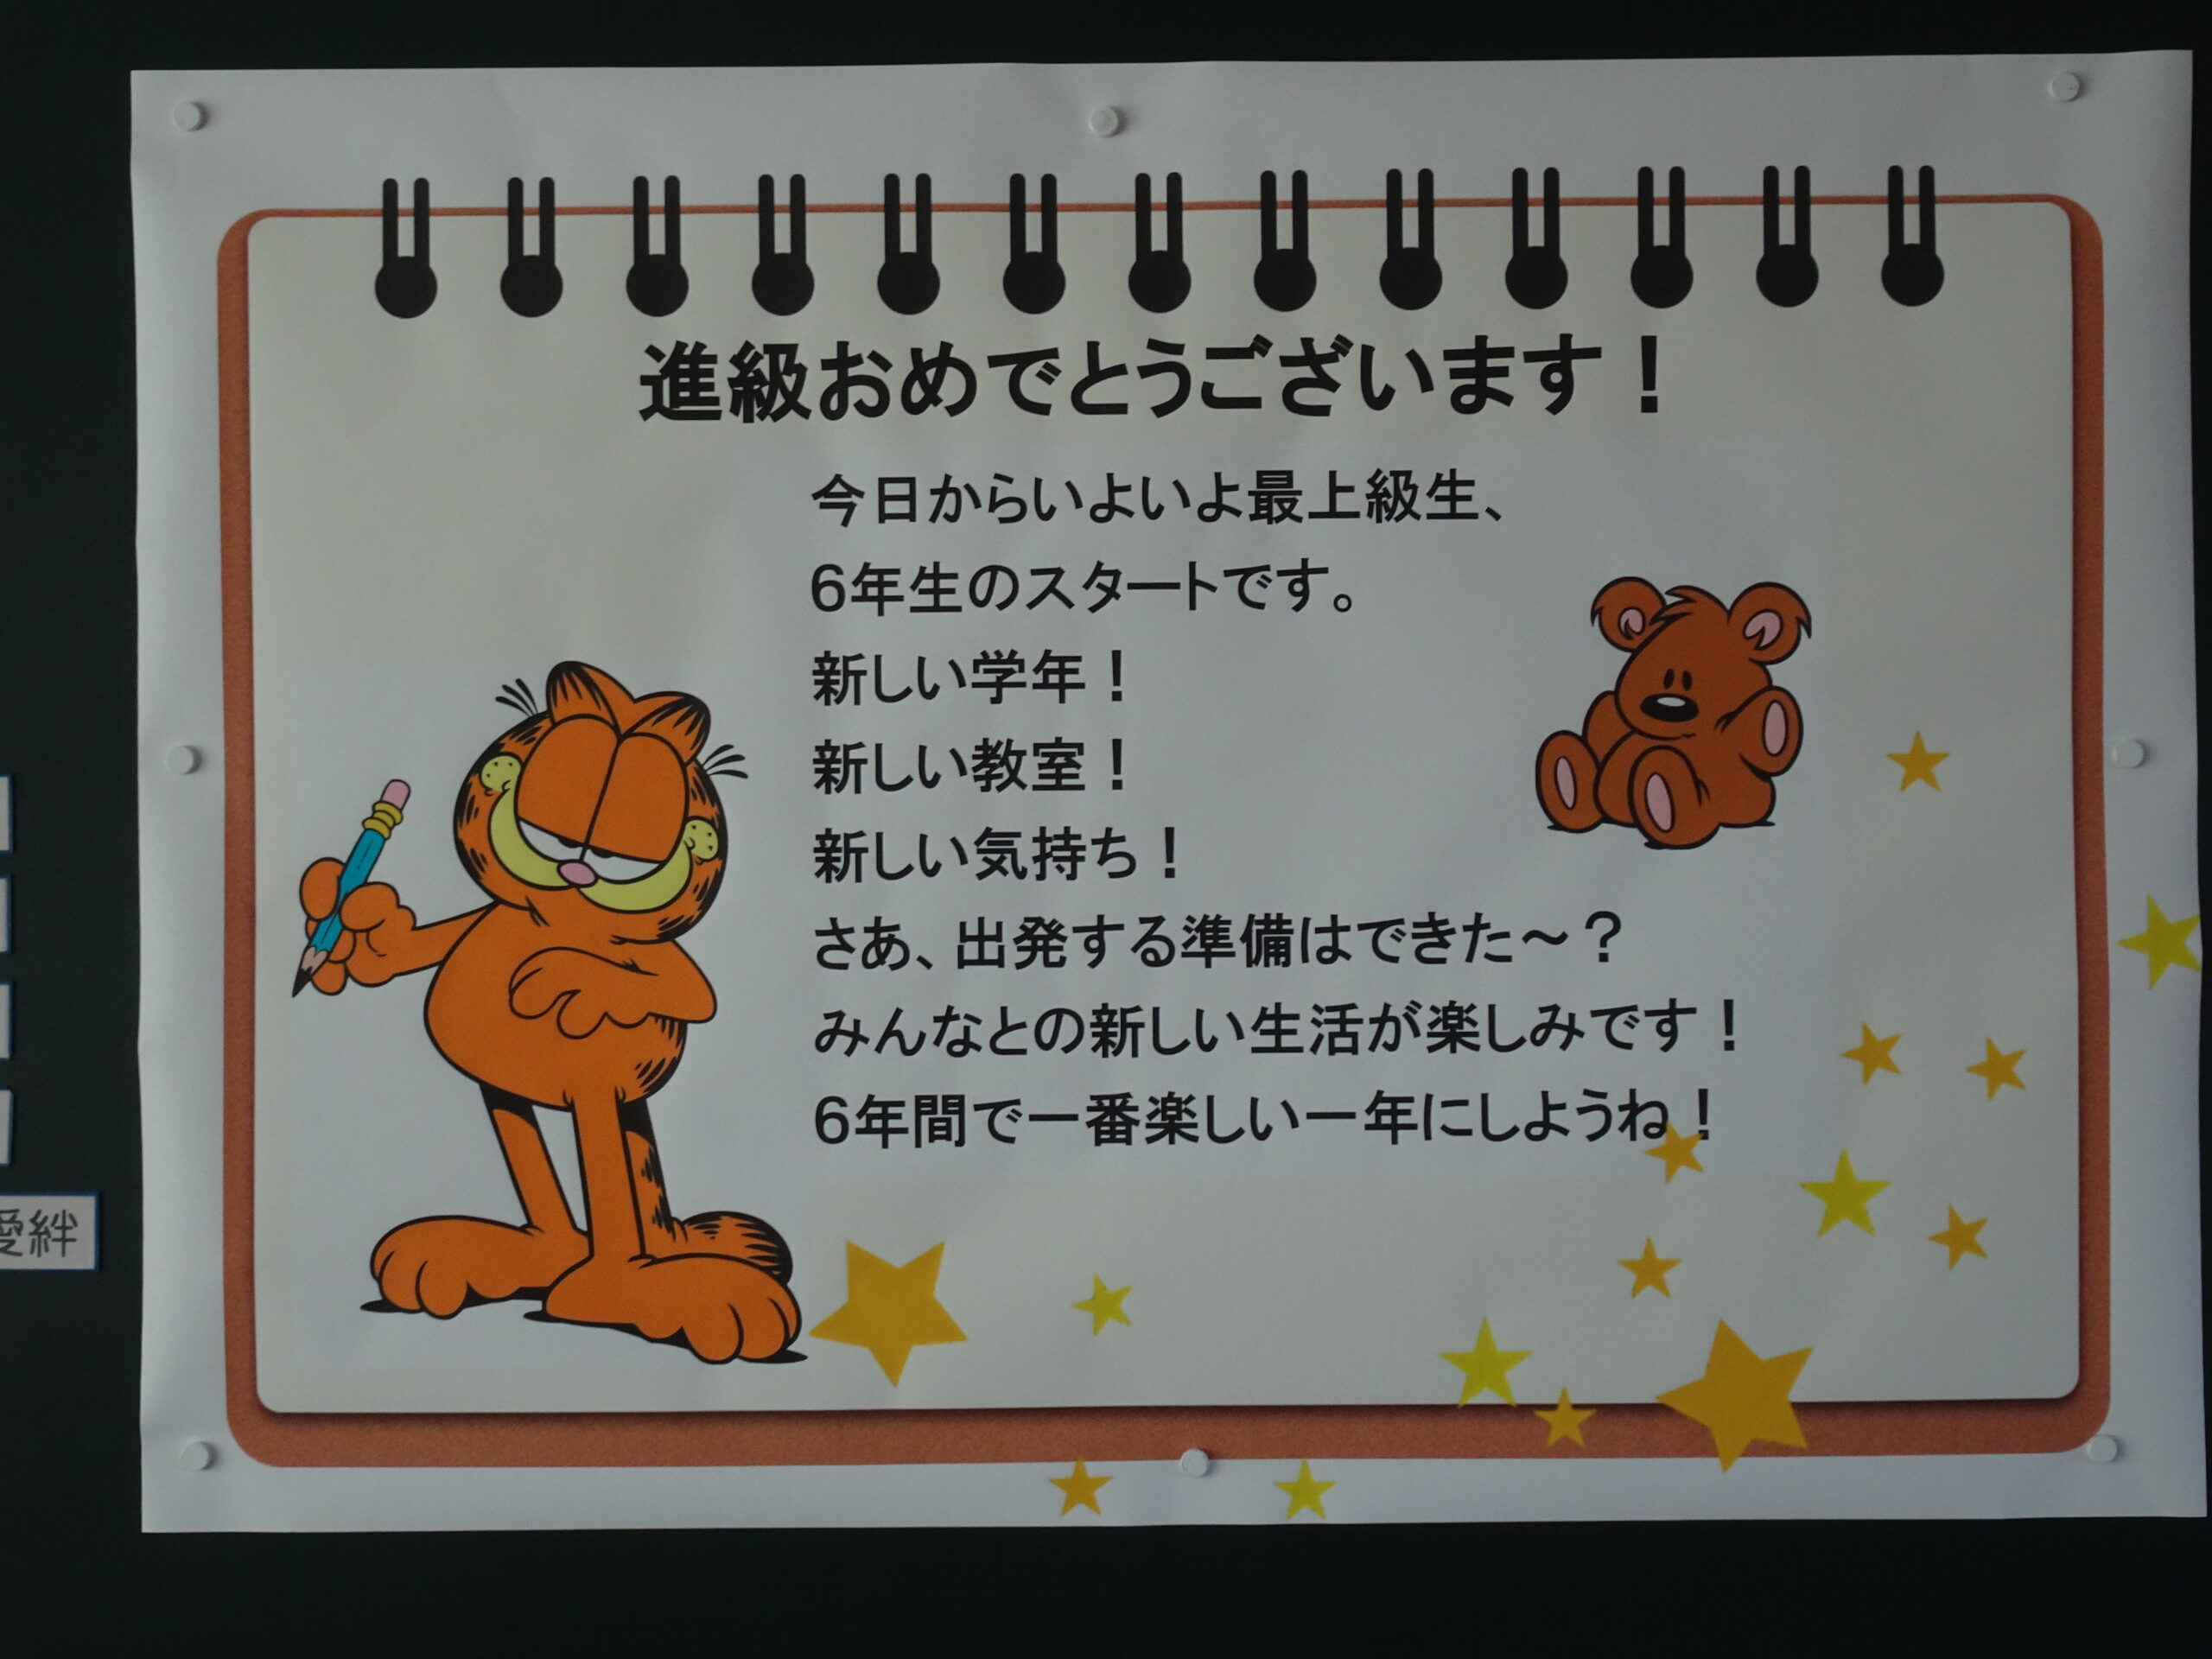 進級おめでとうございます！
今日からいよいよ最上級生、
6年生のスタートです。
新しい学年！
新しい教室！
新しい気持ち！
さあ、出発する準備はできた～？
みんなとの新しい生活が楽しみです！
6年間で一番楽しい一年にしようね！
愛絆